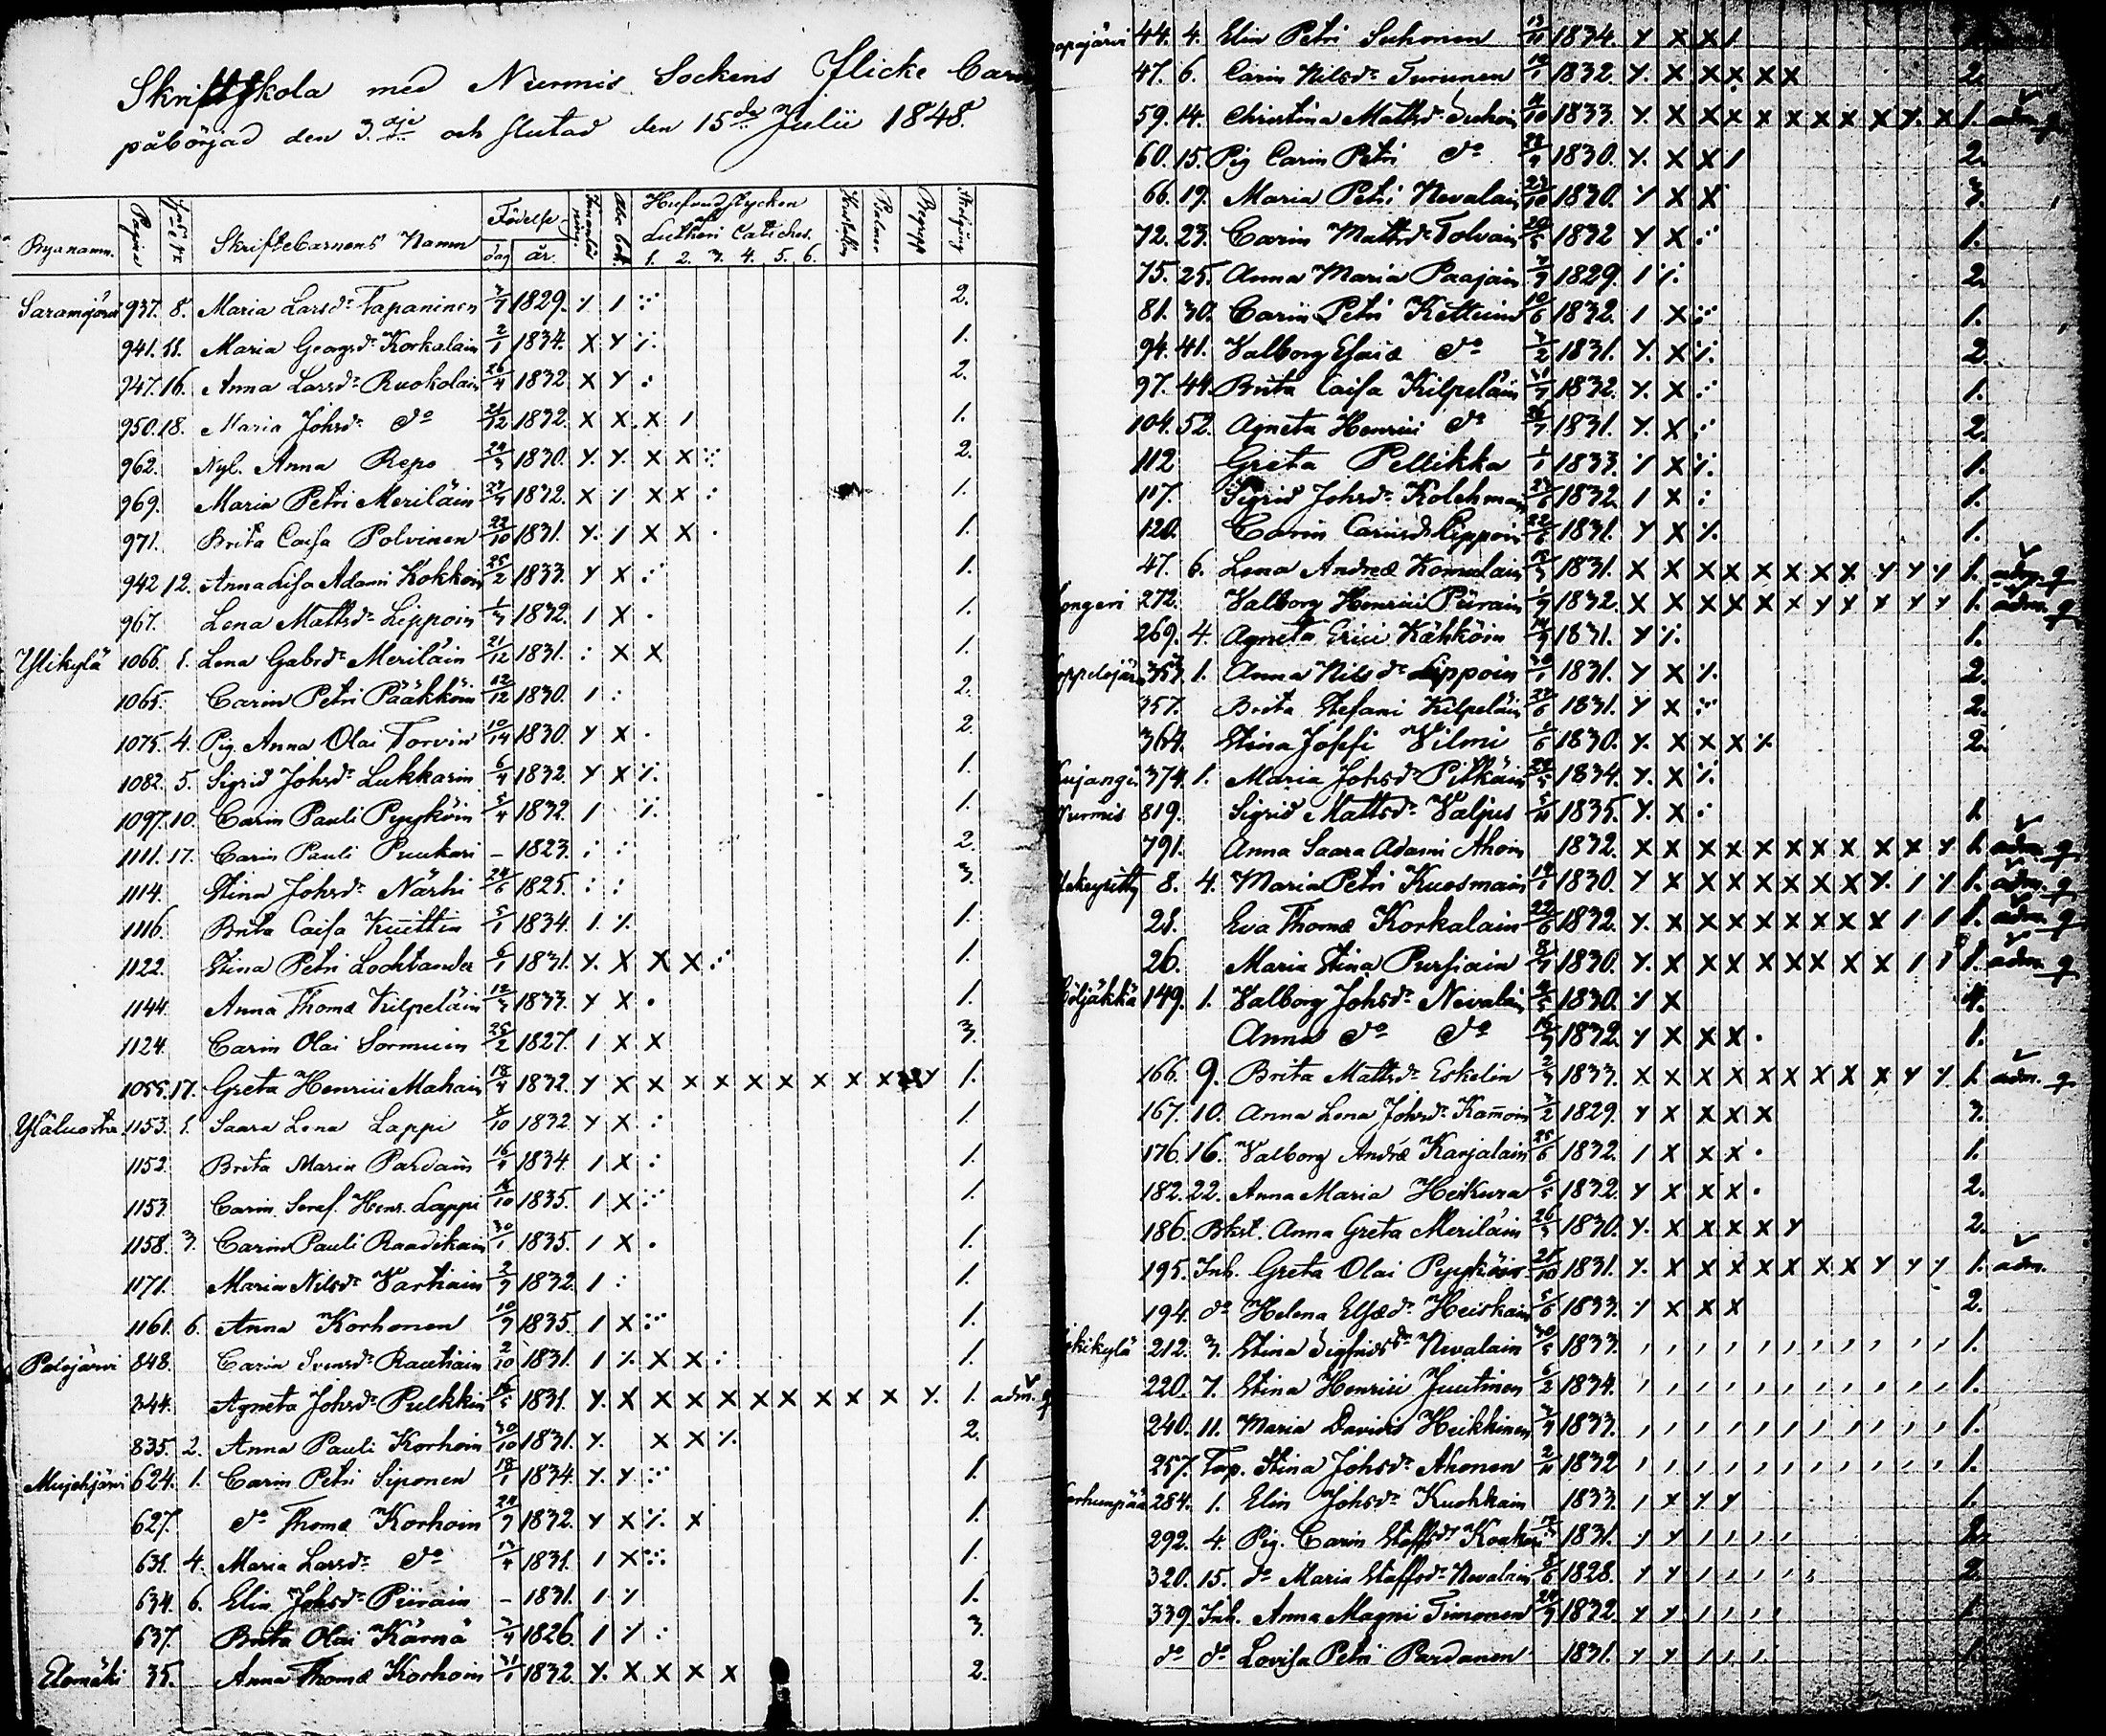 Skriftskola med Nurmis Sockens Flicke Barn
påbörjad den 3.dje och slutad den 15de Julii 1848.
Byanamn. Pagina Skriftebarnens Namn Födelse- dag år. Innanläsning Abc bok Hufvudstycken af Lutheri Catiches. 1. 2. 3. 4. 5. 6. Hustaflan Psalmer Begrepp
Saramojärvi 937. 8. Maria Larsdr Tapaninen 1829. 2.
941. 11. Maria Georgsdr Korkalain 2/1 1834. X Y 1.
947. 16. Anna Larsdr Ruokolain 26/4 1832 X Y 2.
950. 18. Maria Johsdr do 21/12 1832. X X X 1 1.
962. Nyl. Anna Repo 1830. Y. Y. X X 2.
969. Maria Petri Meriläin 1832. X X X 1.
971. Brita Caisa Polvinen 22/10 1831. Y. 1 X X 1.
942 12. Anna Lisa Adami Kokkoin 25/2 1833. Y X 1.
967. Lena Mattsdr Lippoin 1832. 1 X 1.
Ylikylä 1066. 1. Lena Gabrdr Meriläin 21/12 1831. X X 1.
1065. Carin Petri Pääkköin 12/12 1830. 1 2.
1075. 4. Pig. Anna Olai Torvin 1830. Y X 2.
1082. 5. Sigrid Johsdr Lukkarin 6/4 1832. Y X 1.
1097. 10. Carin Pauli Pyyköin 5/4 1832. 1 1.
1111. 17. Carin Pauli Puukari – 1823. 2.
1114. Stina Johsdr Närhi 24/6 1825. 3.
1116. Brita Caisa Kuittin 5/1 1834. 1. 1.
1122. Stina Petri Lochtander 6/1 1831. Y. X X X 1.
1144. Anna Thomæ Kilpeläin 1833. Y X 1.
1124. Carin Olai Sormuin 25/2 1827. 1 X X 3.
1055. 17. Greta Henrici Mahain 18/4 1832. Y X X X X X X X X X Y 1.
Yläluosta 1153. 1. Saara Lena Lappi 1832 Y X 1.
1152. Brita Maria Pardain 16/4 1834. 1 X 1.
1153. Carin Seraf. Henr. Lappi 1835. 1 X 1.
1158. 3. Carin Pauli Raadikain 30/1 1835. 1 X 1.
1171. Maria Nilsdr Vartiain 1832. 1 1.
1161. 6. Anna Korhonen 1835. 1 X 1.
Palojärvi 848. Carin Svensdr Rautiain 2/10 1831. 1 X X 1.
844. Agneta Johsdr Pulkkin 1831. Y. X X X X X X X X X Y. 1. adm. q
835. 2. Anna Pauli Korhoin 30/10 1831. Y. X X 2.
Mujejärvi 624. 1. Carin Petri Siponen 18/1 1834. Y. Y 1.
627. do Thomæ Korhoin 1832. Y X X 1.
631. 4. Maria Larsdr do 13/4 1831. 1 X 1.
634. 6. Elin Johsdr Piirain – 1831. 1 1.
637. Brita Olai Kärnä 1826. 1 3.
Elomäki 35. Anna Thomæ Korhoin 31/1 1832. Y. X X X X 2.
44. 4. Elin Petri Suhonen 13/10 1834. Y X X 1
47. 6. Carin Nilsdr Turunen 1832. Y. X X X X X 2.
59. 14. Christina Mattsdr Suhoin 1833. Y. X X X X X X X X Y. X 1. adm. q
60. 15. Pig Carin Petri do 1830. Y. X X 1 2.
66. 19. Maria Petri Nevalain 23/10 1830. Y X X 3.
72. 23. Carin Mattsdr Tolvain 1832 Y X 1.
75. 25. Anna Maria Paajain 1829. 1 2.
81. 30. Carin Petri Kettuin 10/6 1832. 1 X 1.
94. 41. Valborg Esaiæ do 1831. Y. X 2.
97. 44. Brita Caisa Kilpeläin 1832. Y. X 1.
104. 52. Agneta Henrici do 1831. Y. X 2.
112 Greta Peltikka 1833. X 1.
117. Sigrid Johsdr Kolehmain 1832. 1 X 1.
120. Carin Carinsdr Lippoin 1831. Y X 1.
47. 6. Lena Andreæ Komulain 1831. X X X X X X X X Y Y Y 1. adm. q
272. Valborg Henrici Piirain 1832. X X X X X X Y Y Y Y Y 1. adm. q
269. 4. Agneta Erici Kähköin 1831. Y 1.
353. 1. Anna Nilsdr Lippoin 1831. Y X 2.
357. Brita Stefani Kilpeläin 1831. Y X 2.
364. Stina Josefi Vilmi 1830. Y. X X X 2.
374. 1. Maria Johsdr Pitkäin 1834. Y. X
Nurmis 819. Sigrid Mattsdr Valjus 1835. Y. X 1
791. Anna Saara Adami Ahoin 1832. X X X X X X X X X X Y 1. adm. q
8. 4. Maria Petri Kuosmain 1830. Y X X X X X X X Y. 1 Y 1. adm. q
21. Eva Thomæ Korkalain 22/6 1832. Y. X X X X X X X X 1 1 1. adm. q
26. Maria Stina Pursiain 1830. Y. X X X X X X X X 1 1 1. adm. q
149. 1. Valborg Johsdr Nevalain 1830. Y X 4.
Anna do do 1832. Y X X X 1.
166. 9. Brita Mattsdr Eskelin 1833. X X X X X X X X X Y Y. 1. adm. q
167. 10. Anna Lena Johsdr Kam̄oin 1829. Y X X X X 3.
176. 16. Valborg Andræ Karjalain 25/6 1832. 1 X X X 1.
182. 22. Anna Maria Heikura 1832. Y X X X 2.
186. Bkst. Anna Greta Meriläin 1830. Y. X X X X Y 2.
195. Inh. Greta Olai Pyyköin 21/10 1831. Y. X X X X X X X Y Y Y 1. adm.
194. do Helena Elsædr Heiskain 5/6 1833. Y X X X 2.
212. 3. Stina Sigfridsdr Nevalain 30/5 1833. 1.
220. 7. Stina Henrici Juutinen 6/2 1834. 1.
240. 11. Maria Davids Heikkinen 1833. 1.
257. Torp. Stina Johsdr Ahonen 2/11 1832 1.
284. 1. Elin Johsdr Kuohkain 1833. 1 X Y Y 1.
292. 4. Pig. Carin Staffsdr 1831. Y Y
320. 15. do Maria Staffsdr Nevalain 1828. Y Y 2.
339. Inh. Anna Magni Timonen 1832. Y Y 1.
do do Lovisa Petri Pardanen 1831. Y Y 1.